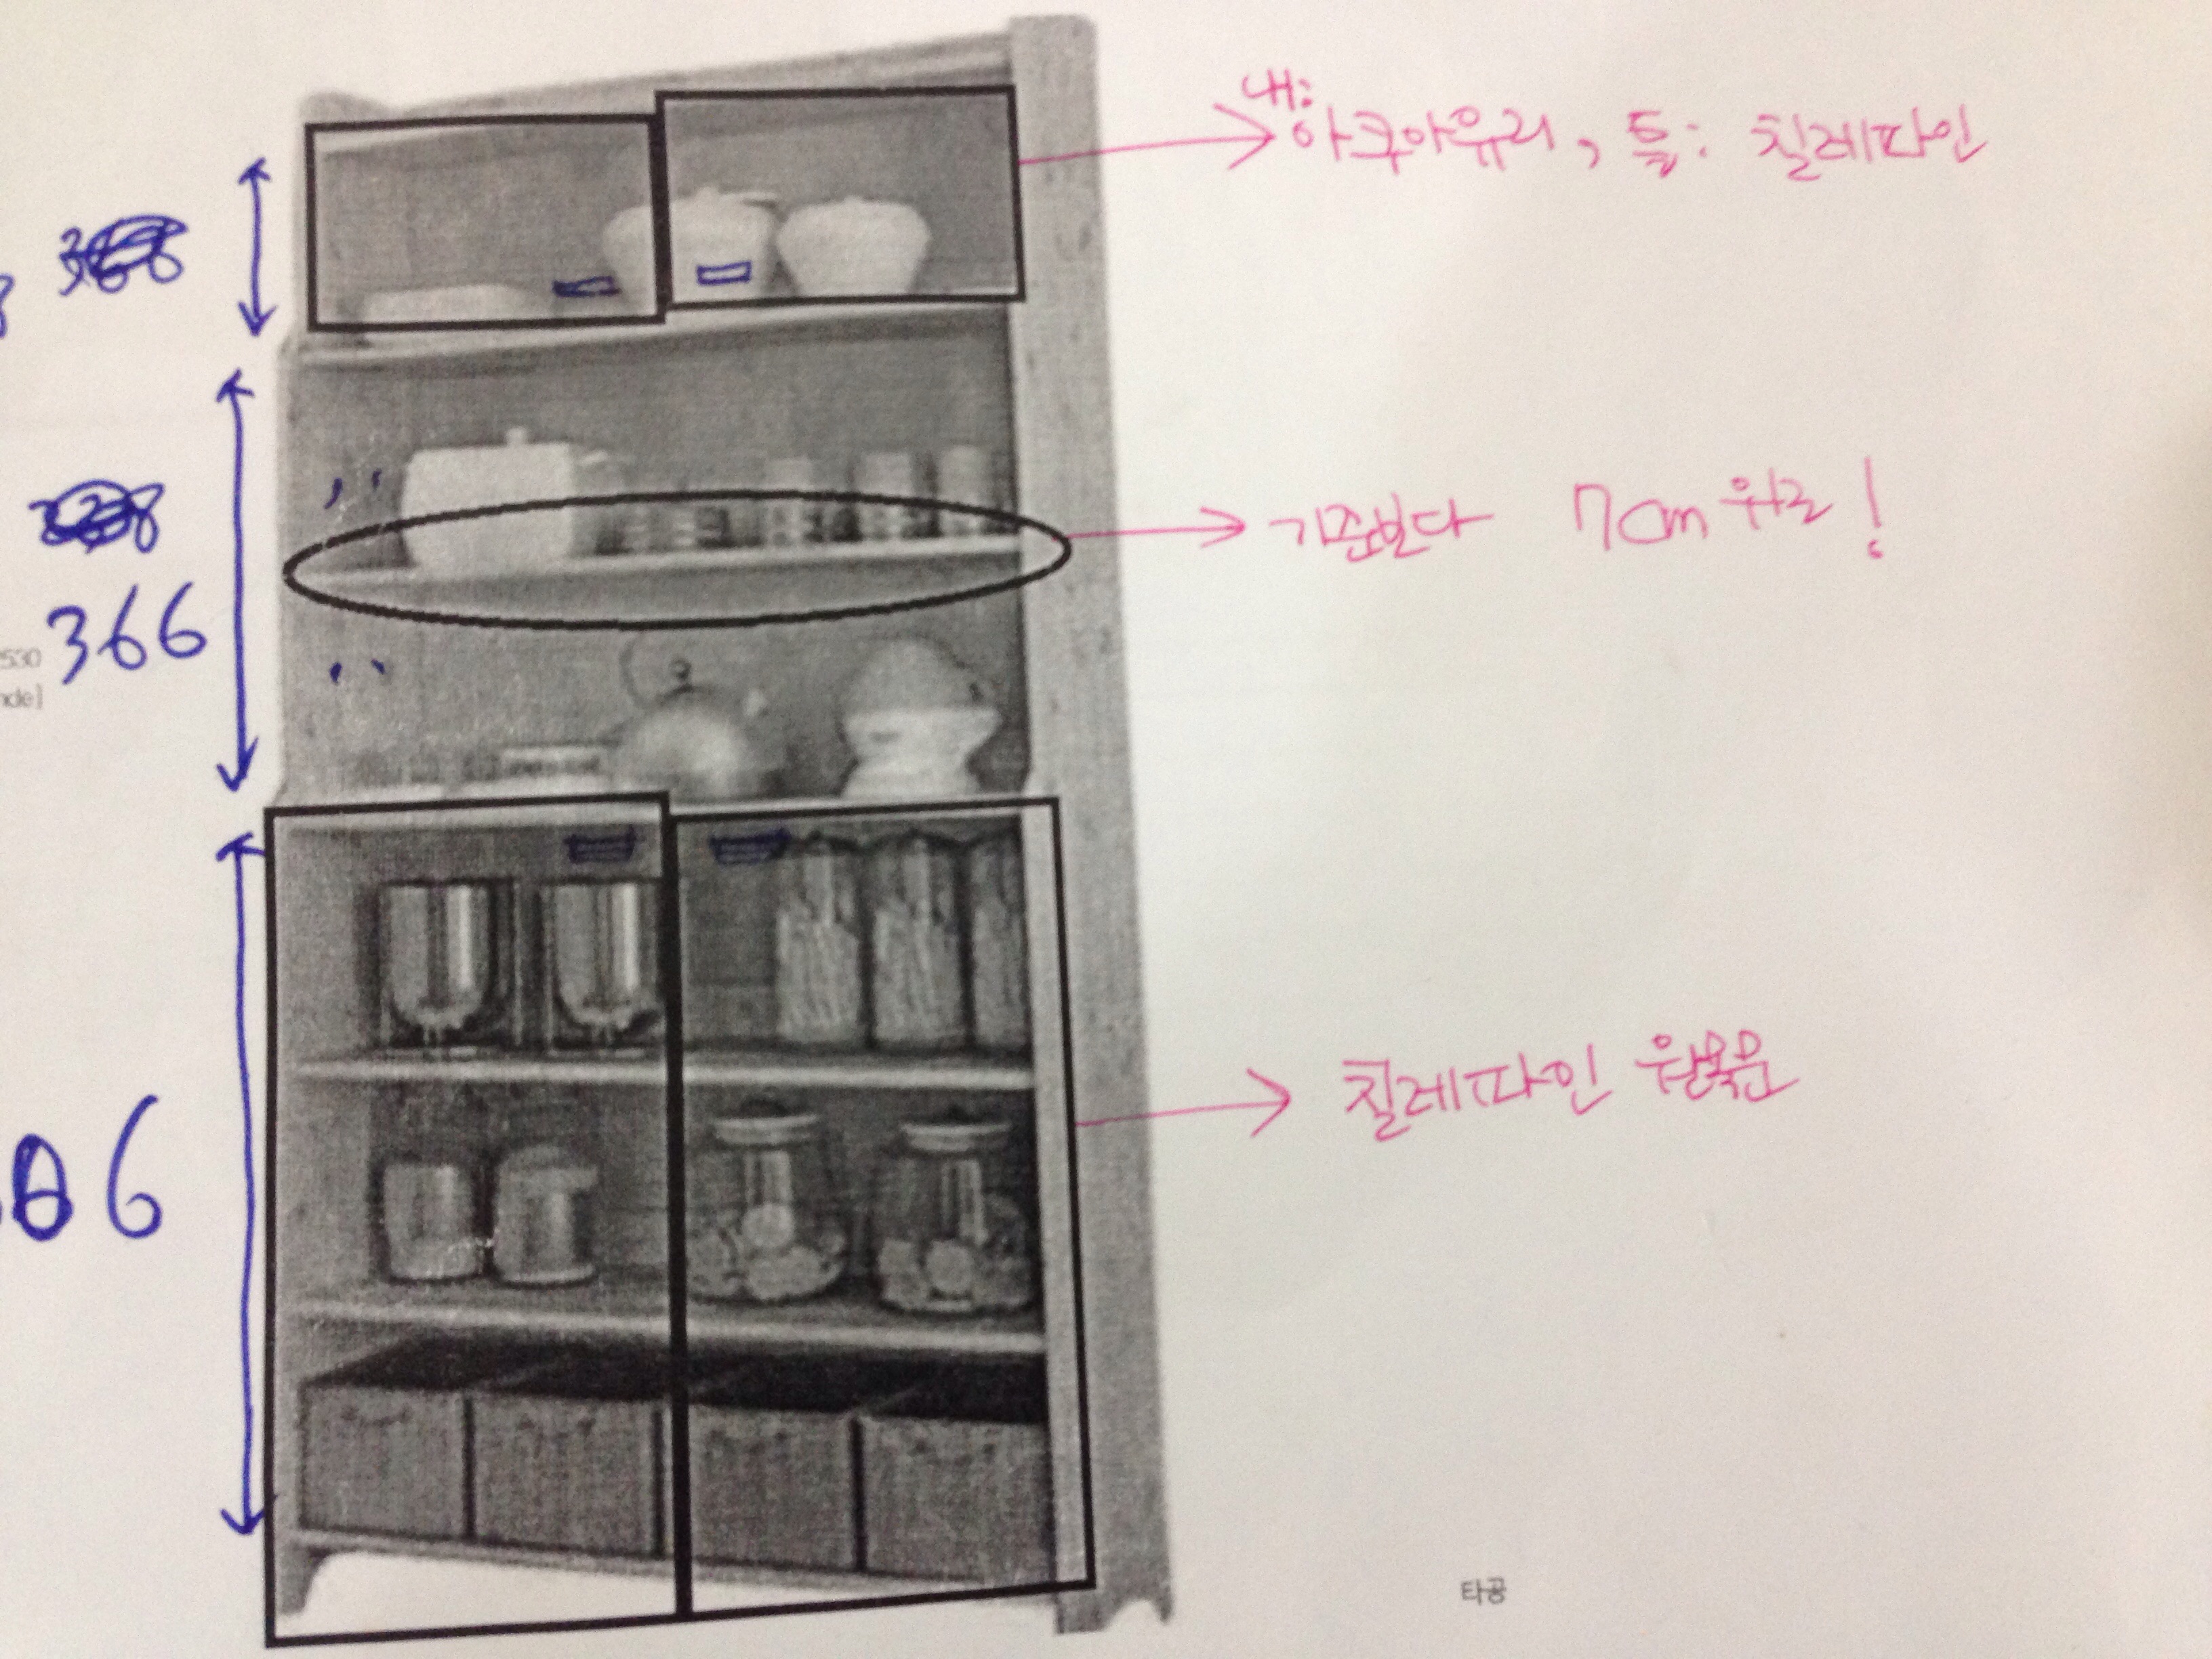 내:
아쿠아유리, 틀: 칠레파인
기준보다 7cm 위로!
366
530
nde]
칠레파인 원목문
06
타공